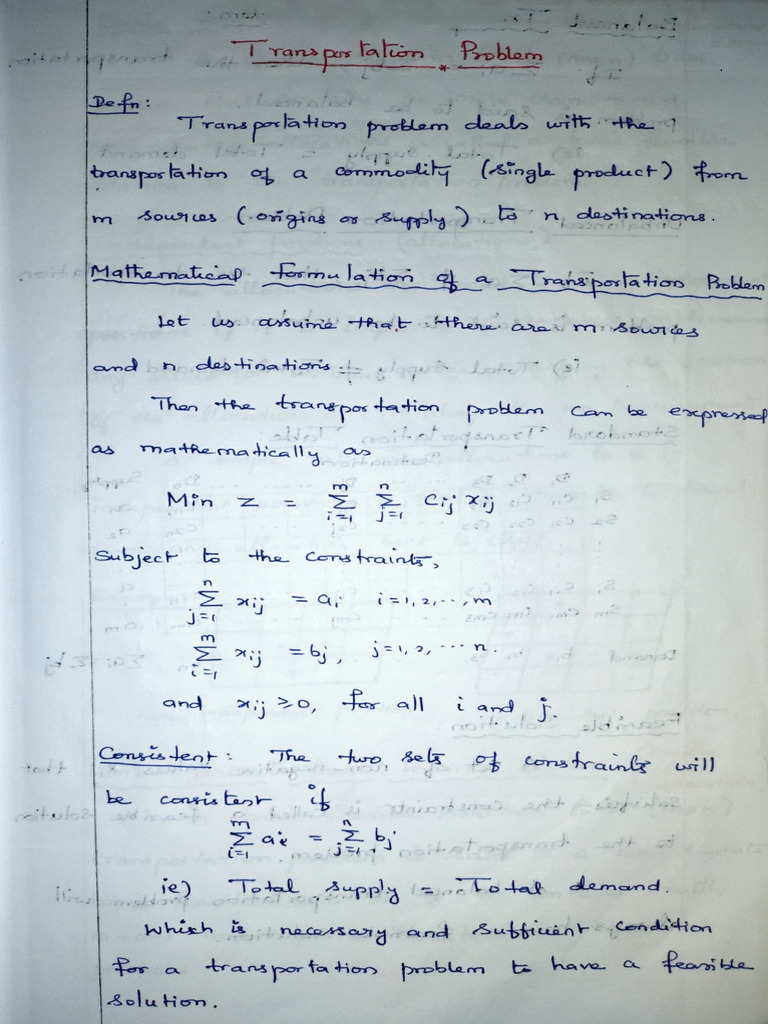 Transportation Problem
Defn:
Transportation problem deals with the
transportation of a commodity (single product) from
m sources (origins or supply) to n destinations.
Mathematical Formulation of a Transportation Problem
Let us assume that there are m sources
and n destinations
Then the transportation problem can be expressed
as mathematically as
Min Z = m∑i=1 n∑j=1 Cij xij
Subject to the constraints,
n∑j=1 xij = ai i=1,2,..,m
m∑i=1 xij = bj, j=1,2,...n.
and xij ≥0, for all i and j.
Consistent: The two sets of constraints will
be consistent if
m∑i=1 ai = n∑j=1 bj
ie) Total supply = Total demand.
Which is necessary and sufficient condition
for a transportation problem to have a feasible
solution.